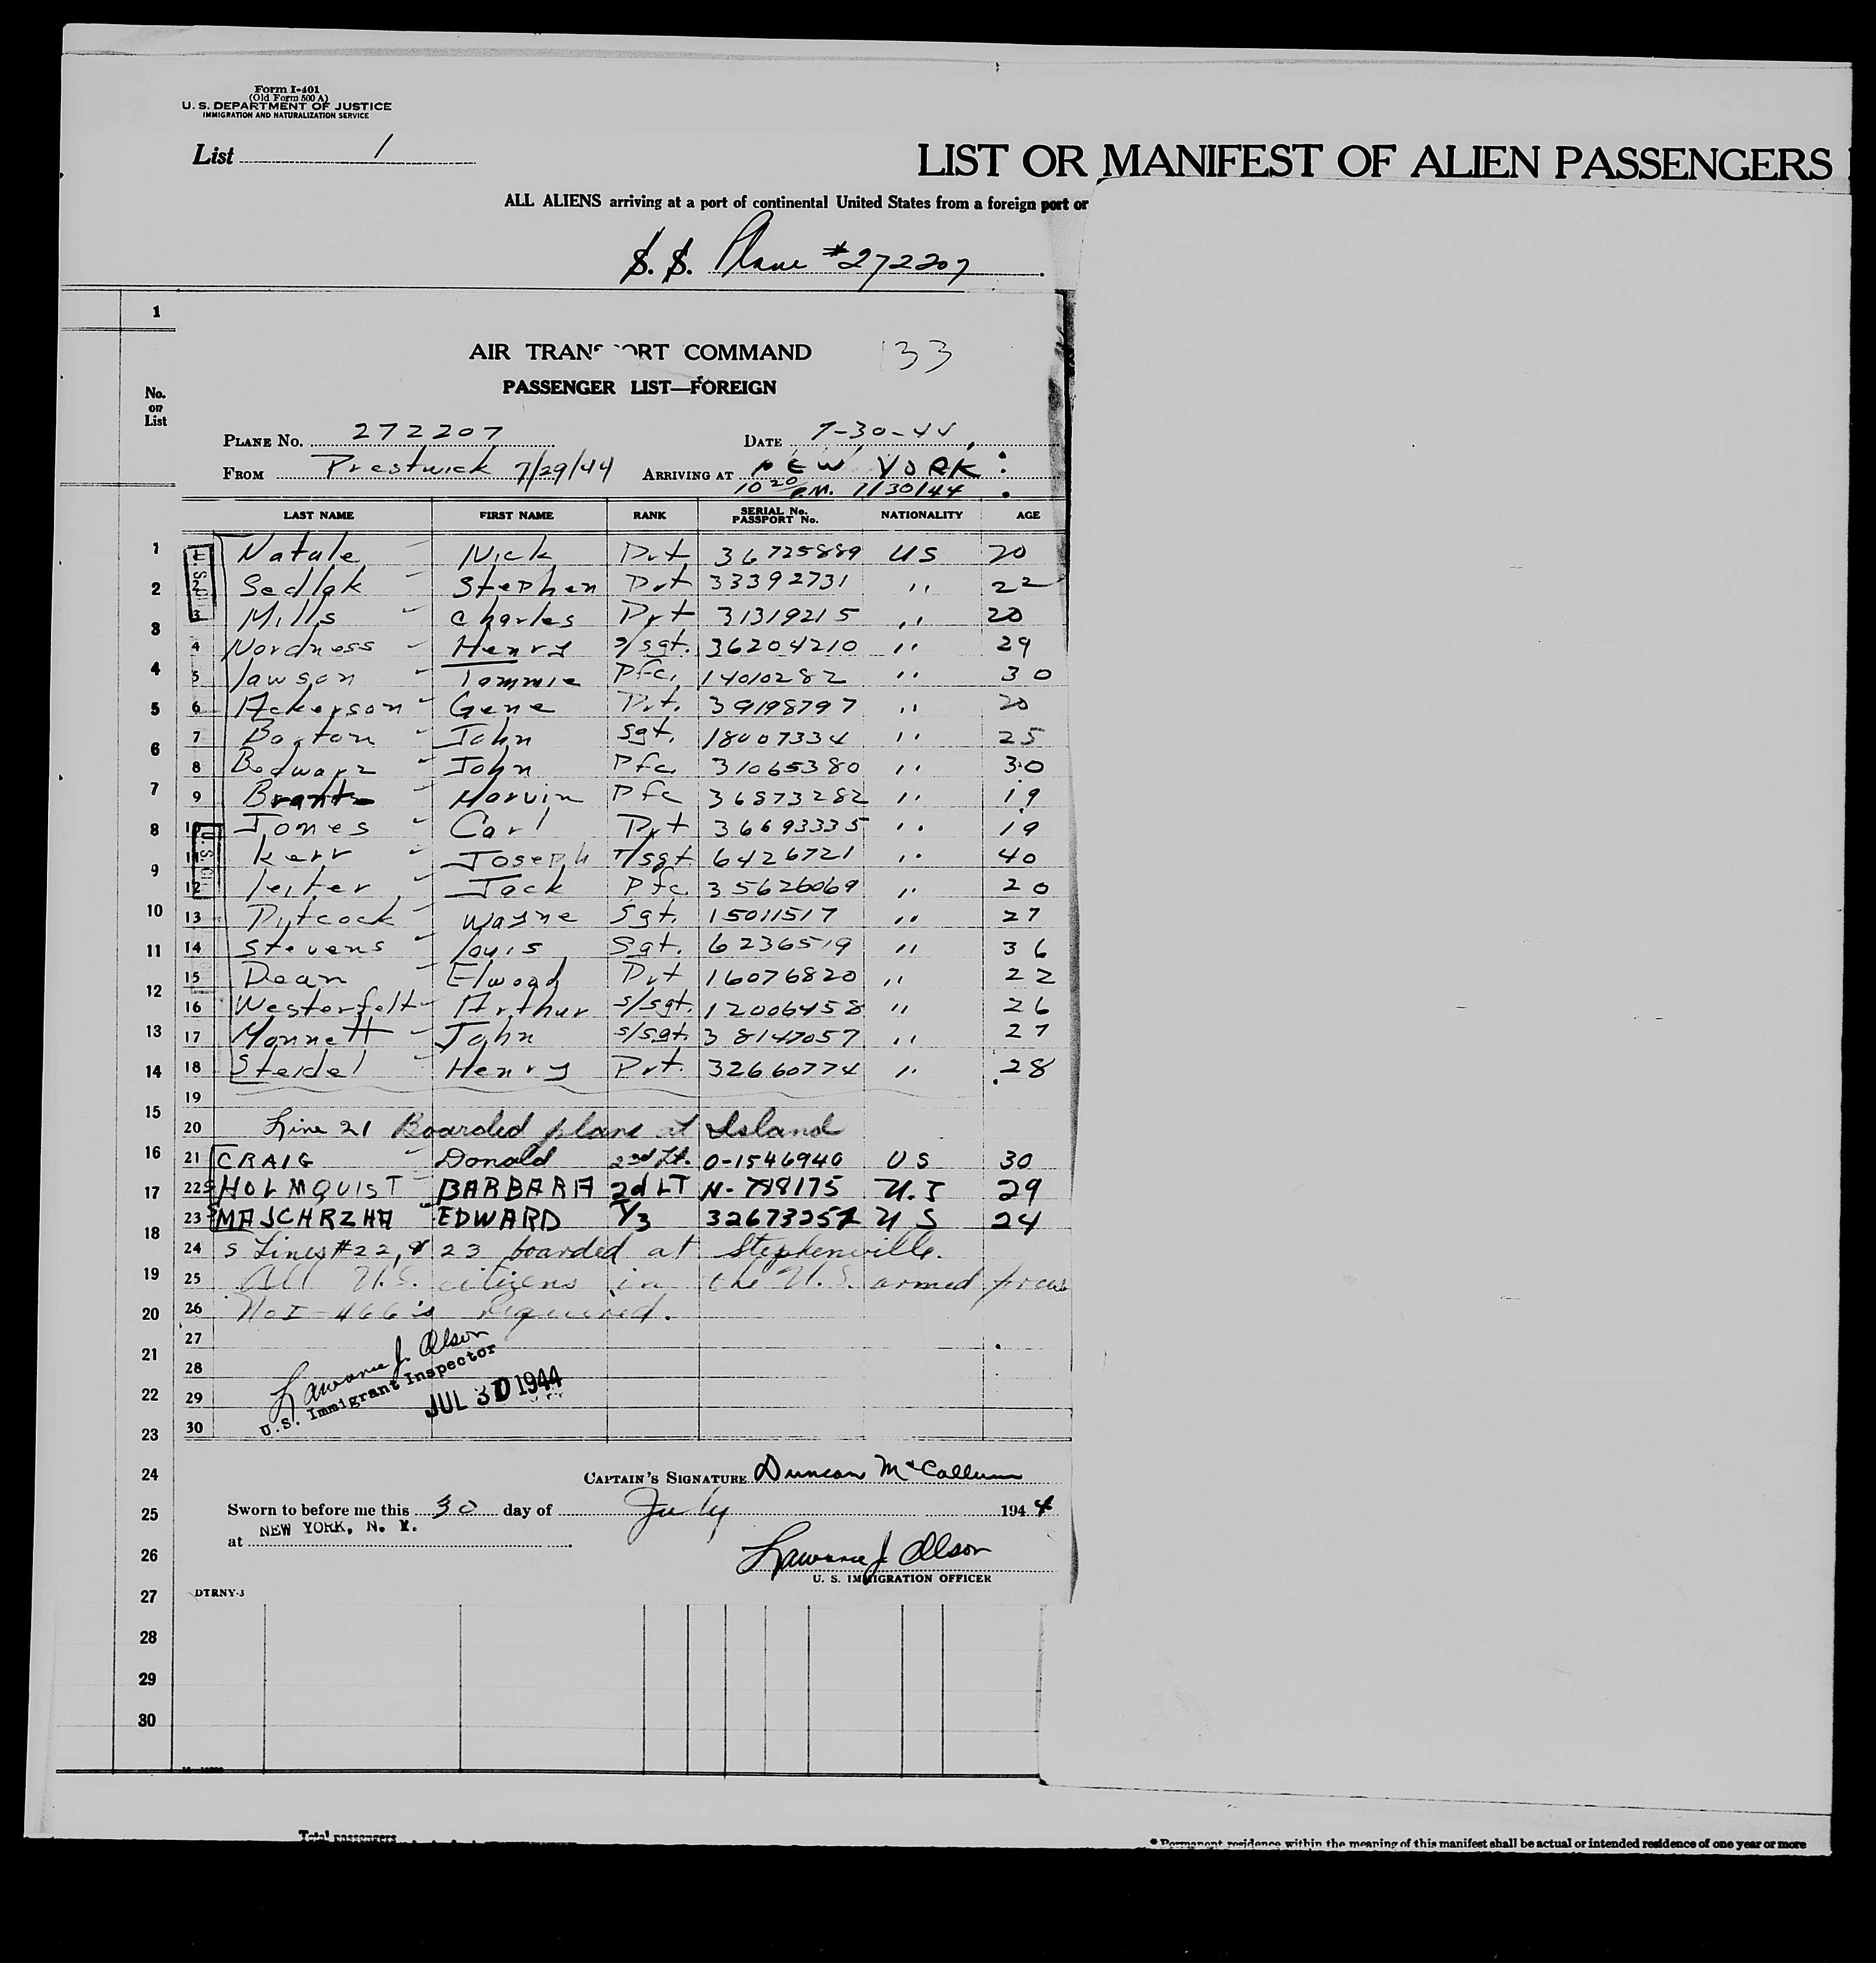 Form I-401
(Old Form 500 A)
U. S. DEPARTMENT OF JUSTICE
IMMIGRATION AND NATURALIZATION SERVICE
List 1
LIST OR MANIFEST OF ALIEN PASSENGERS
ALL ALIENS arriving at a port of continental United States from a foreign port or
S. S. Plane #272207
1
No. on List
AIR TRANSPORT COMMAND 133
PASSENGER LIST—FOREIGN
PLANE No. 272207 DATE 7-30-44
FROM Prestwick 7/29/44 ARRIVING AT NEW YORK
10 20 P.M. 7/30/44
LAST NAME FIRST NAME RANK SERIAL No. PASSPORT No. NATIONALITY AGE
1 Natale Nick Pvt 36725889 US 20
2 Sedlak Stephen Pvt 33392731 " 22
3 Mills Charles Pvt 31319215 " 20
4 Nordness Henry S/Sgt. 36204210 " 29
5 Lawson Tommie Pfc. 14010282 " 30
6 Ackerson Gene Pvt. 39198797 " 20
7 Barton John Sgt. 18007334 " 25
8 John Pfc. 31065380 " 30
9 Brantz Morvin Pfc 36873282 " 19
10 Jones Carl Pvt 36693335 " 19
11 Kerr Joseph T/Sgt. 6426721 " 40
12 Leiter Jack Pfc. 35626069 " 20
13 Wayne Sgt. 15011517 " 27
14 Stevens Louis Sgt. 6236519 " 36
15 Dean Elwood Pvt 16076820 " 22
16 Westerfelt Arthur S/Sgt. 12006458 " 26
17 Monnett John S/Sgt. 38147057 " 27
18 Steidel Henry Pvt. 32660774 " 28
19
20 Line 21 Boarded plane at Island
21 CRAIG Donald 2nd Lt. O-1546940 US 30
22 S HOLMQUIST BARBARA 2d LT N-788175 U.S 29
23 S MAJCHRZHA EDWARD T/3 32673257 U S 24
24 S Lines #22, & 23 boarded at Stephenville.
25 All U.S. citizens in the U.S. armed forces
26 No I-466's required.
27
28 Lawrence J. Olson
29 U.S. Immigrant Inspector JUL 30 1944
30
CAPTAIN'S SIGNATURE Duncan McCallum
Sworn to before me this 30 day of July 1944
at NEW YORK, N. Y.
Lawrence J. Olson
U. S. IMMIGRATION OFFICER
DTRNY-3
1
2
3
4
5
6
7
8
9
10
11
12
13
14
15
16
17
18
19
20
21
22
23
24
25
26
27
28
29
30
Total passengers
* Permanent residence within the meaning of this manifest shall be actual or intended residence of one year or more